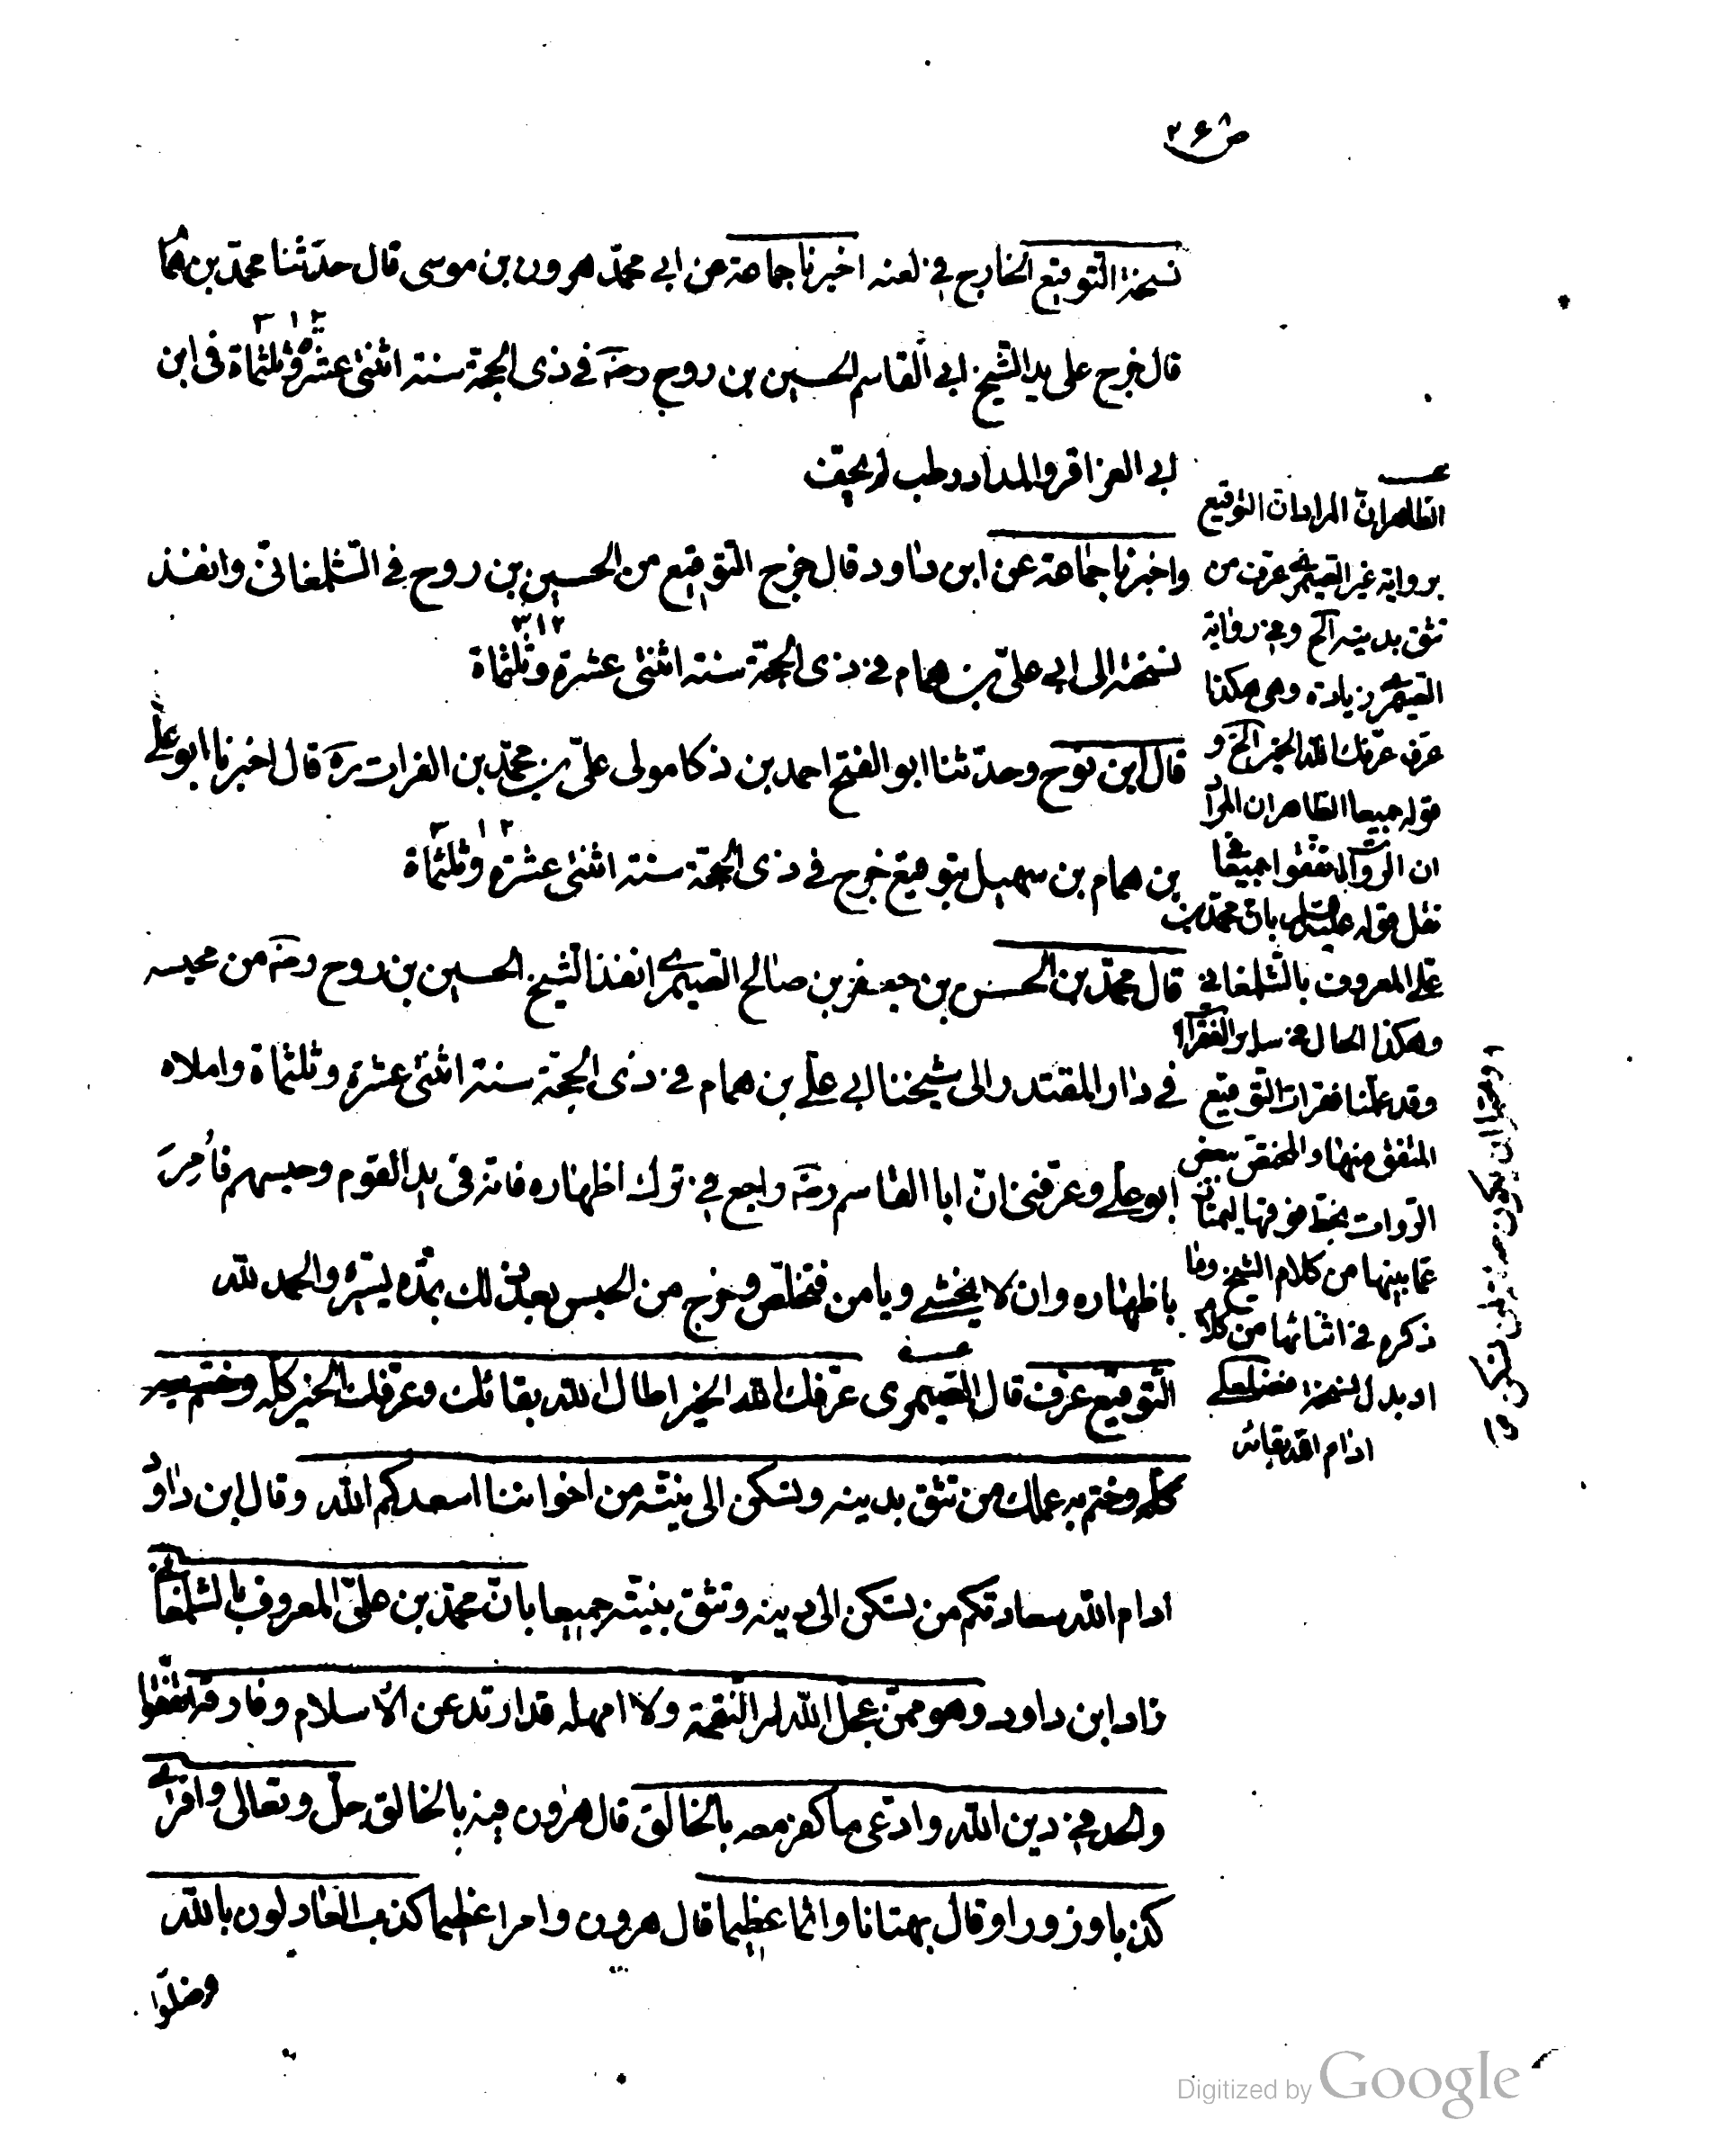 ص ٢٤٨
نسخة التوقيع الخارج في لعنه اخبرنا جماعة عن ابي محمّد هرون بن موسى قال حدّثنا محمّد بن همام
٣١٢
قال خرج على يد الشّيخ ابي القاسم الحسين بن روح رضَه في ذى الحجّة سنة اثنىٰ عشرة وثلثماة فى ابن
ابي العزاقر والمداد رطب لم يجف
واخبرنا جماعة عن ابن داود قال خرج التّوقيع من الحسين بن روح في الشّلمغانىّ وانفذ
٣١٢
نسخته الى ابي علىّ بن همام في ذى الحجّة سنة اثنىٰ عشرة وثلثماة
قال ابن نوح وحدّثنا ابو الفتح احمد بن ذكا مولى علىّ بن محمّد بن الفرات ره قال اخبرنا ابو علي
٣١٢
بن همام بن سهيل بتوقيع خرج في ذى الحجّة سنة اثنىٰ عشرة وثلثماة
قال محمّد بن الحسن بن جعفر بن صالح الصيمرى انفذ الشّيخ الحسين بن روح رضَه من محبسه
في دار المقتدر الى شيخنا ابي علي بن همام في ذى الحجّة سنة اثنىٰ عشرة وثلثماة واملاه
ابو علي وعرّفنى انّ ابا القاسم رضَه راجع في ترك اظهاره فانّه فى يد القوم وحبسهم فأُمِرَ
باظهاره وان لا يخشىٰ ويامن فتخلّص وخرج من الحبس بعد ذلك بمدّة يسيرة والحمد للّه
التّوقيع عرّف قال الصيمرى عرّفك اللّه الخير اطال اللّه بقائك وعرّفك الخير كلّه وختم به
كلّه وختم به عملك من تثق بدينه وتسكن الى نيّته من اخواننا اسعدكم اللّه وقال ابن داود
ادام اللّه سعادتكم من تسكن الى دينه وتثق بنيّته جميعا بانّ محمّد بن علىّ المعروف بالشلمغاني
زاد ابن داود وهو ممّن عجّل اللّه له النّقمة ولا امهله قد ارتد عن الاسلام وفارقه اتّفقوا
والحد في دين اللّه وادّعى ما كفر معه بالخالق قال هرون فيه بالخالق جلّ وتعالى وافترى
كذبا وزورا وقال بهتانا واثما عظيما قال هرون وامرا عظيما كذب العادلون باللّه
وضلّوا
الظاهر انّ المراد ان التوقيع
برواية غير الصيمرى عرف من
تثق بدينه الخ وفي رواية
الصيمرى زيادة وهى هكذا
عرف عرّفك اللّه الخير الخ و
قوله جميعا الظاهر ان المراد
ان الرواة اتفقوا جميعا في
نقل قوله عليه السلم بان محمّد بن
علي المعروف بالشلمغاني
وهكذا الحال في ساير الفقرات
وقد علّمنا فقرات التّوقيع
المتفق منها والمختص ببعض
الرّوات بخط فوقها ليمتاز
عمّا بينها من كلام الشيخ وما
ذكره في اثنائها من كلامه
او بدل لنسخة
ادام اللّه بقائه